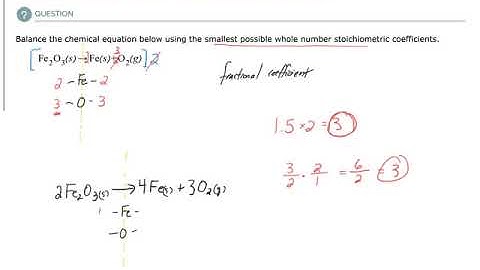 ? QUESTION
Balance the chemical equation below using the smallest possible whole number stoichiometric coefficients.
[Fe₂O₃(s)→2Fe(s)+3/2O₂(g)]2
fractional coefficient
2 - Fe - 2
3 - O - 3
1.5 × 2 = 3
3/2 · 2/1 = 6/2 = 3
2Fe₂O₃(s) → 4Fe(s) + 3O₂(g)
- Fe -
- O -